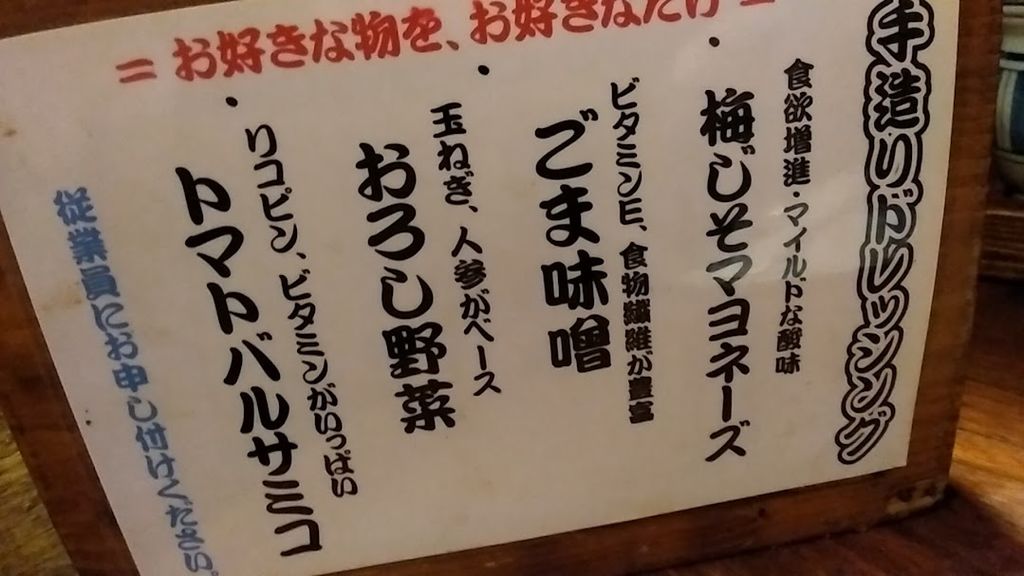 手造りドレッシング
＝お好きな物を、お好きなだけ＝
食欲増進・マイルドな酸味
・梅じそマヨネーズ
ビタミンE、食物繊維が豊富
・ごま味噌
玉ねぎ、人参がベース
・おろし野菜
リコピン、ビタミンがいっぱい
・トマトバルサミコ
従業員にお申し付けください。